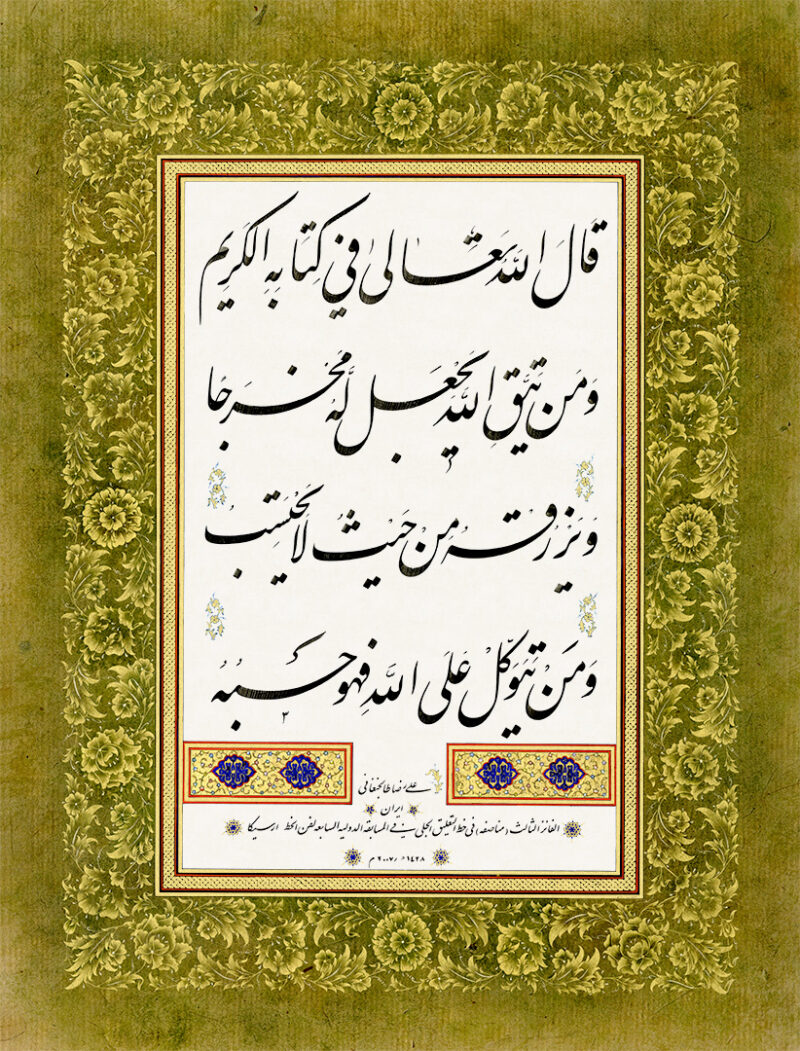 قَالَ اللَّهُ تَعَالىٰ في كِتَابِهِ الكَرِيم
وَمَن يَتَّقِ اللَّهَ يَجْعَل لَّهُ مَخْرَجًا
وَيَرْزُقْهُ مِنْ حَيْثُ لَا يَحْتَسِبُ
وَمَنْ يَتَوَكَّلْ عَلَى اللَّهِ فَهُوَ حَسْبُهُ
ايران
الفائز الثالث (مناصفه) في خط التعليق الجلي في المسابقة الدولية السابعة لفن الخط ارسيكا
١٤٢٨هـ / ٢٠٠٧م